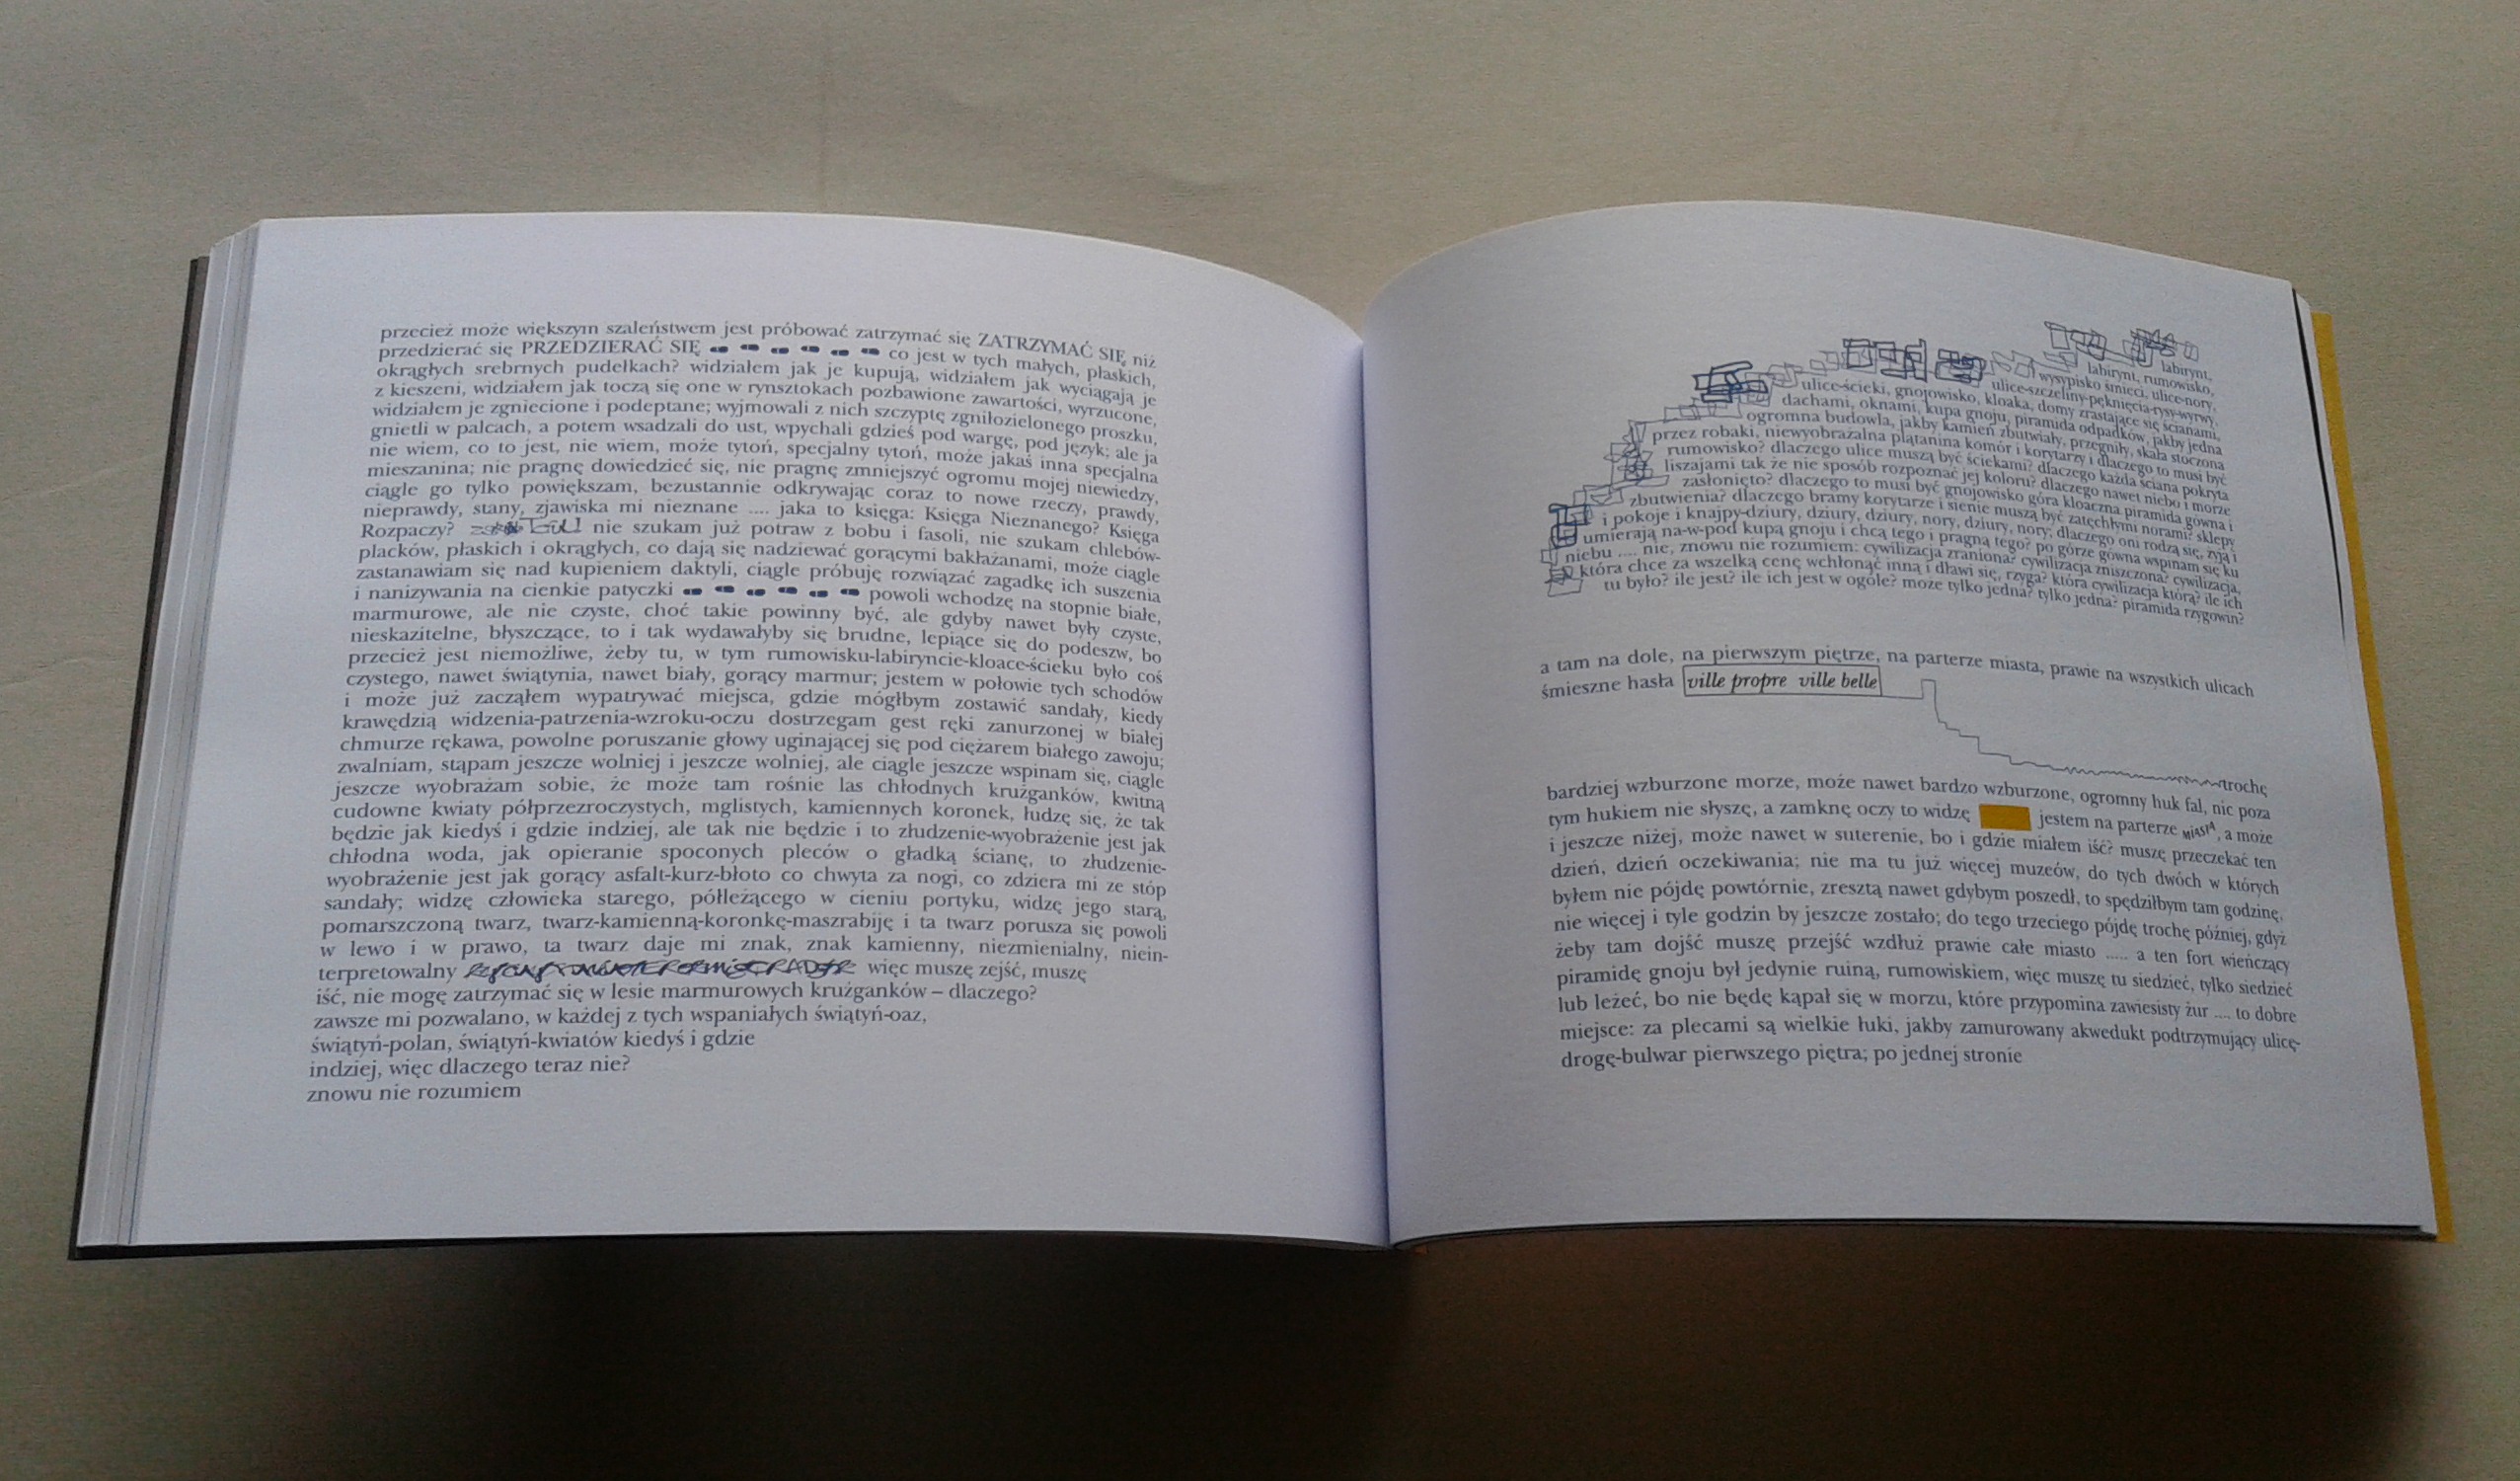 przecież może większym szaleństwem jest próbować zatrzymać się ZATRZYMAĆ SIĘ niż
przedzierać się PRZEDZIERAĆ SIĘ co jest w tych małych, płaskich,
okrągłych srebrnych pudełkach? widziałem jak je kupują, widziałem jak wyciągają je
z kieszeni, widziałem jak toczą się one w rynsztokach pozbawione zawartości, wyrzucone,
widziałem je zgniecione i podeptane; wyjmowali z nich szczyptę zgniłozielonego proszku,
gnietli w palcach, a potem wsadzali do ust, wpychali gdzieś pod wargę, pod język; ale ja
nie wiem, co to jest, nie wiem, może tytoń, specjalny tytoń, może jakaś inna specjalna
mieszanina; nie pragnę dowiedzieć się, nie pragnę zmniejszyć ogromu mojej niewiedzy,
ciągle go tylko powiększam, bezustannie odkrywając coraz to nowe rzeczy, prawdy,
nieprawdy, stany, zjawiska mi nieznane .... jaka to księga: Księga Nieznanego? Księga
Rozpaczy? nie szukam już potraw z bobu i fasoli, nie szukam chlebów-
placków, płaskich i okrągłych, co dają się nadziewać gorącymi bakłażanami, może ciągle
zastanawiam się nad kupieniem daktyli, ciągle próbuję rozwiązać zagadkę ich suszenia
i nanizywania na cienkie patyczki powoli wchodzę na stopnie białe,
marmurowe, ale nie czyste, choć takie powinny być, ale gdyby nawet były czyste,
nieskazitelne, błyszczące, to i tak wydawałyby się brudne, lepiące się do podeszw, bo
przecież jest niemożliwe, żeby tu, w tym rumowisku-labiryncie-kloace-ścieku było coś
czystego, nawet świątynia, nawet biały, gorący marmur; jestem w połowie tych schodów
i może już zacząłem wypatrywać miejsca, gdzie mógłbym zostawić sandały, kiedy
krawędzią widzenia-patrzenia-wzroku-oczu dostrzegam gest ręki zanurzonej w białej
chmurze rękawa, powolne poruszanie głowy uginającej się pod ciężarem białego zawoju;
zwalniam, stąpam jeszcze wolniej i jeszcze wolniej, ale ciągle jeszcze wspinam się, ciągle
jeszcze wyobrażam sobie, że może tam rośnie las chłodnych krużganków, kwitną
cudowne kwiaty półprzezroczystych, mglistych, kamiennych koronek, łudzę się, że tak
będzie jak kiedyś i gdzie indziej, ale tak nie będzie i to złudzenie-wyobrażenie jest jak
chłodna woda, jak opieranie spoconych pleców o gładką ścianę, to złudzenie-
wyobrażenie jest jak gorący asfalt-kurz-błoto co chwyta za nogi, co zdziera mi ze stóp
sandały; widzę człowieka starego, półleżącego w cieniu portyku, widzę jego starą,
pomarszczoną twarz, twarz-kamienną-koronkę-maszrabiję i ta twarz porusza się powoli
w lewo i w prawo, ta twarz daje mi znak, znak kamienny, niezmienialny, niein-
terpretowalny więc muszę zejść, muszę
iść, nie mogę zatrzymać się w lesie marmurowych krużganków – dlaczego?
zawsze mi pozwalano, w każdej z tych wspaniałych świątyń-oaz,
świątyń-polan, świątyń-kwiatów kiedyś i gdzie
indziej, więc dlaczego teraz nie?
znowu nie rozumiem
labirynt,
labirynt, rumowisko,
wysypisko śmieci, ulice-nory,
ulice-szczeliny-pęknięcia-rysy-wyrwy,
ulice-ścieki, gnojowisko, kloaka, domy zrastające się ścianami,
dachami, oknami, kupa gnoju, piramida odpadków, jakby jedna
ogromna budowla, jakby kamień zbutwiały, przegniły, skała stoczona
przez robaki, niewyobrażalna plątanina komór i korytarzy i dlaczego to musi być
rumowisko? dlaczego ulice muszą być ściekami? dlaczego każda ściana pokryta
liszajami tak że nie sposób rozpoznać jej koloru? dlaczego nawet niebo i morze
zasłonięto? dlaczego to musi być gnojowisko góra kloaczna piramida gówna i
zbutwienia? dlaczego bramy korytarze i sienie muszą być zatęchłymi norami? sklepy
i pokoje i knajpy-dziury, dziury, dziury, nory, dziury, nory; dlaczego oni rodzą się, żyją i
umierają na-w-pod kupą gnoju i chcą tego i pragną tego? po górze gówna wspinam się ku
niebu .... nie, znowu nie rozumiem: cywilizacja zraniona? cywilizacja zniszczona? cywilizacja,
która chce za wszelką cenę wchłonąć inną i dławi się, rzyga? która cywilizacja którą? ile ich
tu było? ile jest? ile ich jest w ogóle? może tylko jedna? tylko jedna? piramida rzygowin?
a tam na dole, na pierwszym piętrze, na parterze miasta, prawie na wszystkich ulicach
śmieszne hasła ville propre ville belle
trochę
bardziej wzburzone morze, może nawet bardzo wzburzone, ogromny huk fal, nic poza
tym hukiem nie słyszę, a zamknę oczy to widzę jestem na parterze MIASTA, a może
i jeszcze niżej, może nawet w suterenie, bo i gdzie miałem iść? muszę przeczekać ten
dzień, dzień oczekiwania; nie ma tu już więcej muzeów, do tych dwóch w których
byłem nie pójdę powtórnie, zresztą nawet gdybym poszedł, to spędziłbym tam godzinę,
nie więcej i tyle godzin by jeszcze zostało; do tego trzeciego pójdę trochę później, gdyż
żeby tam dojść muszę przejść wzdłuż prawie całe miasto ..... a ten fort wieńczący
piramidę gnoju był jedynie ruiną, rumowiskiem, więc muszę tu siedzieć, tylko siedzieć
lub leżeć, bo nie będę kąpał się w morzu, które przypomina zawiesisty żur .... to dobre
miejsce: za plecami są wielkie łuki, jakby zamurowany akwedukt podtrzymujący ulicę-
drogę-bulwar pierwszego piętra; po jednej stronie